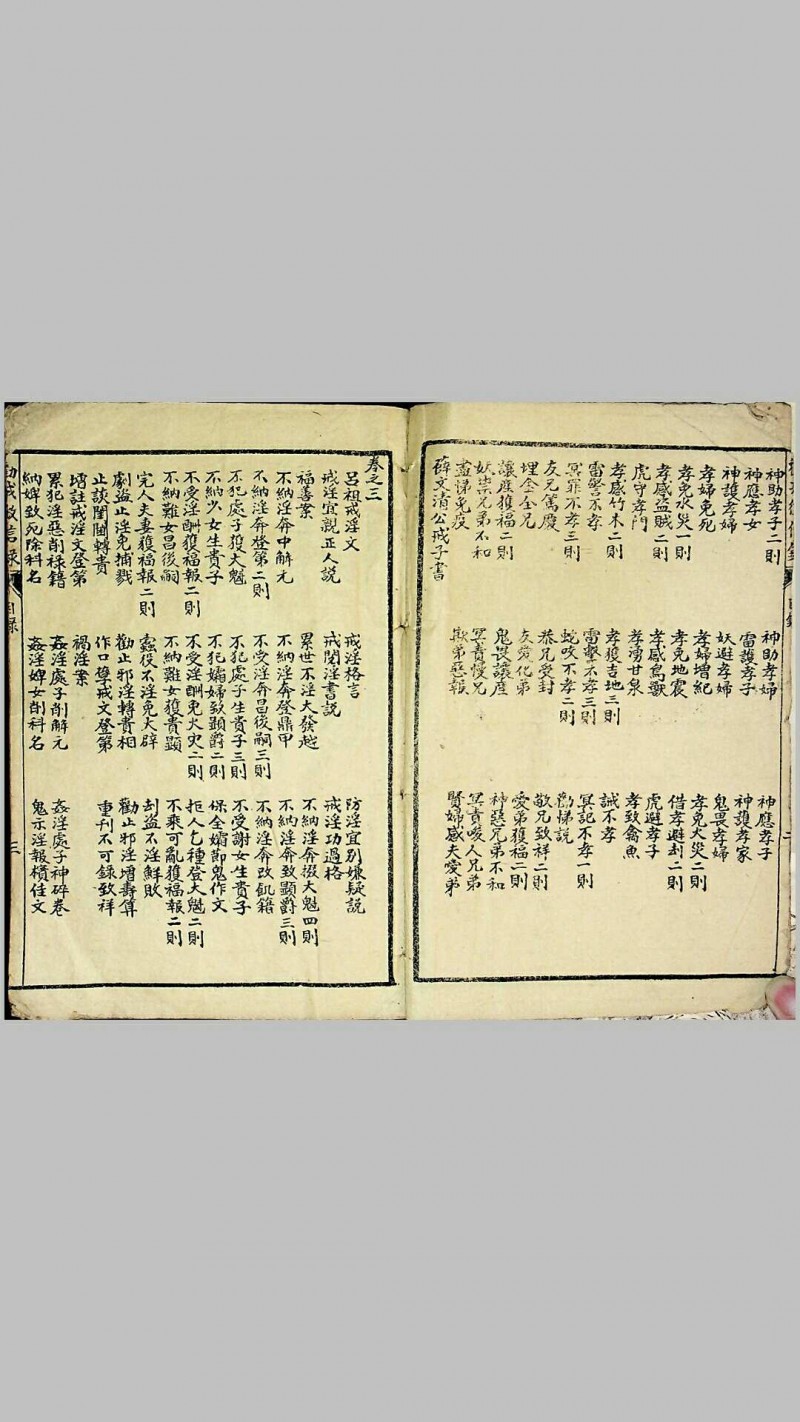 神助孝子二則 神助孝婦 神應孝子
神應孝女 雷護孝子 神護孝家
神護孝婦 妖避孝婦 鬼畏孝婦
孝婦免死 孝婦增紀 孝免火災二則
孝免水災一則 孝免地震 借孝避刦二則
孝感盜賊二則 孝感鳥獸 虎避孝子
虎守孝門 孝湧甘泉 孝致禽魚
孝感竹木二則 孝獲吉地三則 誡不孝
雷警不孝 雷擊不孝三則 冥記不孝一則
冥罪不孝三則 蛇咬不孝二則 勸悌說
友兄篤慶 恭兄受封 敬兄致祥二則
埋金全兄 友愛化弟 愛弟獲福二則
讓產獲福二則 鬼畏讓產 神惡兄弟不和
妖祟兄弟不和 冥責慢兄 冥責唆人兄弟
盡悌免疫 欺弟惡報 賢婦感夫愛弟
薛文清公戒子書
目錄
二
卷之三
呂祖戒淫文 戒淫格言 防淫宜別嫌疑說
戒淫宜親正人說 戒閱淫書說 戒淫功過格
福善案 累世不淫大發越 不納淫奔掇大魁四則
不納淫奔中解元 不納淫奔登鼎甲 不納淫奔致顯爵三則
不納淫奔登第二則 不受淫奔昌後嗣三則 不納淫奔改飢籍
不犯處子獲大魁 不犯處子生貴子三則 不受謝女生貴子
不納少女生貴子 不犯孀婦致顯爵二則 保全孀節鬼作文
不受淫酬獲福報二則 不受淫酬免火災二則 拒人乞種登大魁二則
不納難女昌後嗣 不納難女獲貴顯 不乘可亂獲福報二則
完人夫妻獲福報二則 蠹役不淫免大辟 刦盜不淫鮮敗
劇盜止淫免捕戮 勸止邪淫轉貴相 勸止邪淫增壽算
止談閨閫轉貴 作口孽戒文登第 重刊不可錄致祥
增註戒淫文登第 禍淫案
累犯淫惡削祿籍 姦淫處子削解元 姦淫處子神碎卷
納婢致死除科名 姦淫婢女削科名 鬼示淫報櫝佳文
目錄
三